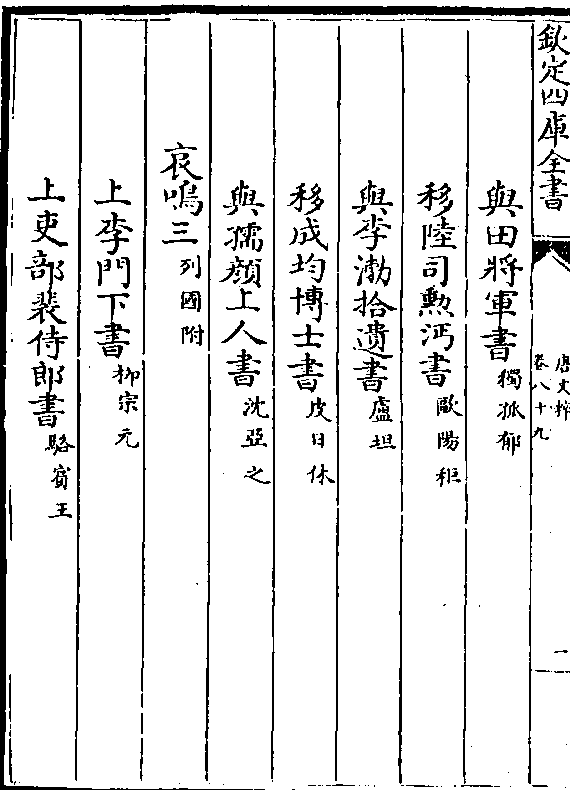 欽定四庫全書
唐文粹
卷八十九
一
與田將軍書 獨孤郁
移陸司勲沔書 歐陽秬
與李渤拾遺書 盧坦
移成均博士書 皮日休
與孺顔上人書 沈亞之
哀鳴三 列國附
上李門下書 栁宗元
上吏部裴侍郎書 駱賓王